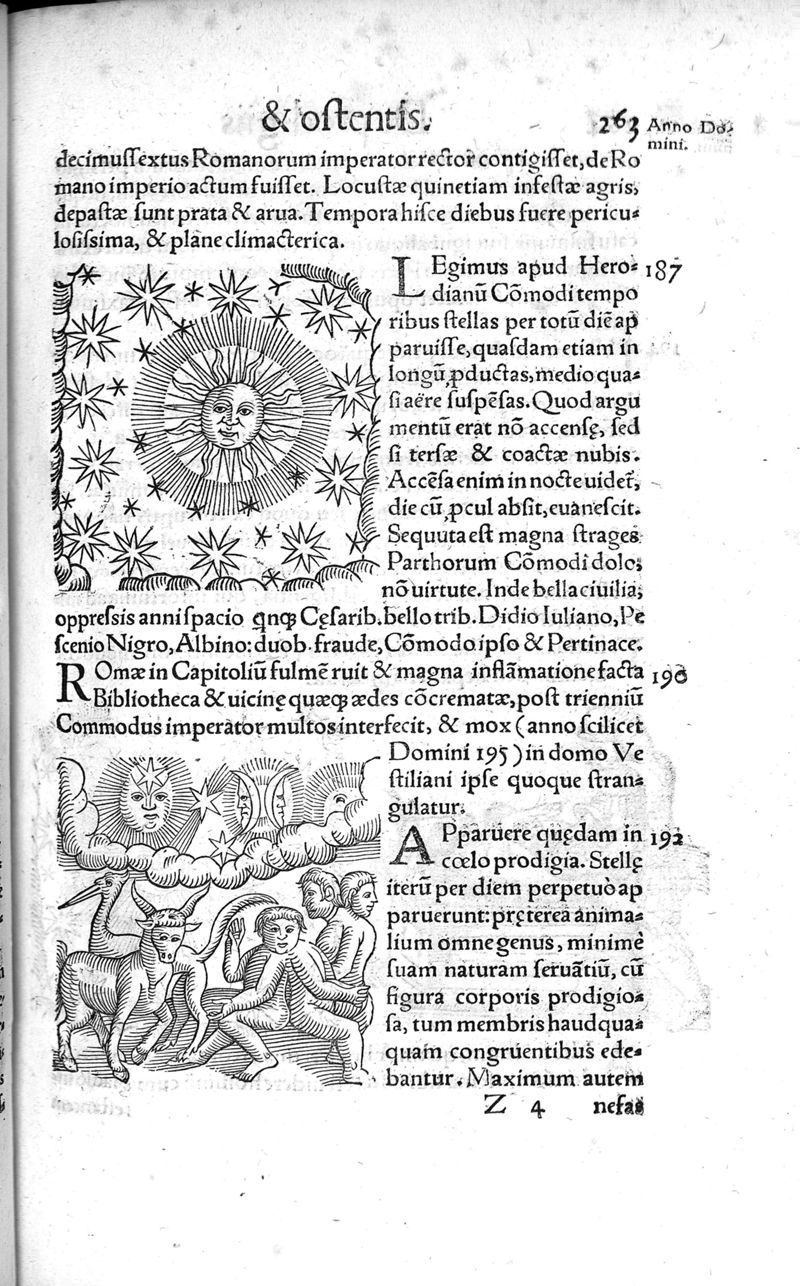 & oſtentis.
263 Anno Do-
mini.
decimuſſextus Romanorum imperator rector contigiſſet, de Ro
mano imperio actum fuiſſet. Locuſtæ quinetiam infeſtæ agris,
depaſtæ ſunt prata & arua. Tempora hiſce diebus fuere pericu-
loſiſsima, & plane climacterica.
LEgimus apud Hero- 187
dianũ Cõmodi tempo
ribus ſtellas per totũ diẽ ap
paruiſſe, quaſdam etiam in
longũ ꝓductas, medio qua-
ſi aëre ſuſpẽſas. Quod argu
mentũ erat nõ accenſę, ſed
ſi terſæ & coactæ nubis.
Accẽſa enim in nocte uidet̃,
die cũ ꝓcul abſit, euaneſcit.
Sequuta eſt magna ſtrages
Parthorum Cõmodi dolo,
nõ uirtute. Inde bella ciuilia,
oppreſsis anni ſpacio qnqꝫ Cęſarib. bello trib. Didio Iuliano, Pe
ſcenio Nigro, Albino: duob. fraude, Cõmodo ipſo & Pertinace.
ROmæ in Capitoliũ fulmẽ ruit & magna inflãmatione facta 190
Bibliotheca & uicinę quæqꝫ ædes cõcrematæ, poſt trienniũ
Commodus imperator multos interfecit, & mox (anno ſcilicet
Domini 195) in domo Ve
ſtiliani ipſe quoque ſtran-
gulatur.
APparuere quędam in 192
cœlo prodigia. Stellę
iterũ per diem perpetuò ap
paruerunt: pręterea anima-
lium omne genus, minimè
ſuam naturam ſeruãtiũ, cũ
figura corporis prodigio-
ſa, tum membris haudqua-
quam congruentibus ede-
bantur. Maximum autem
Z 4 nefas